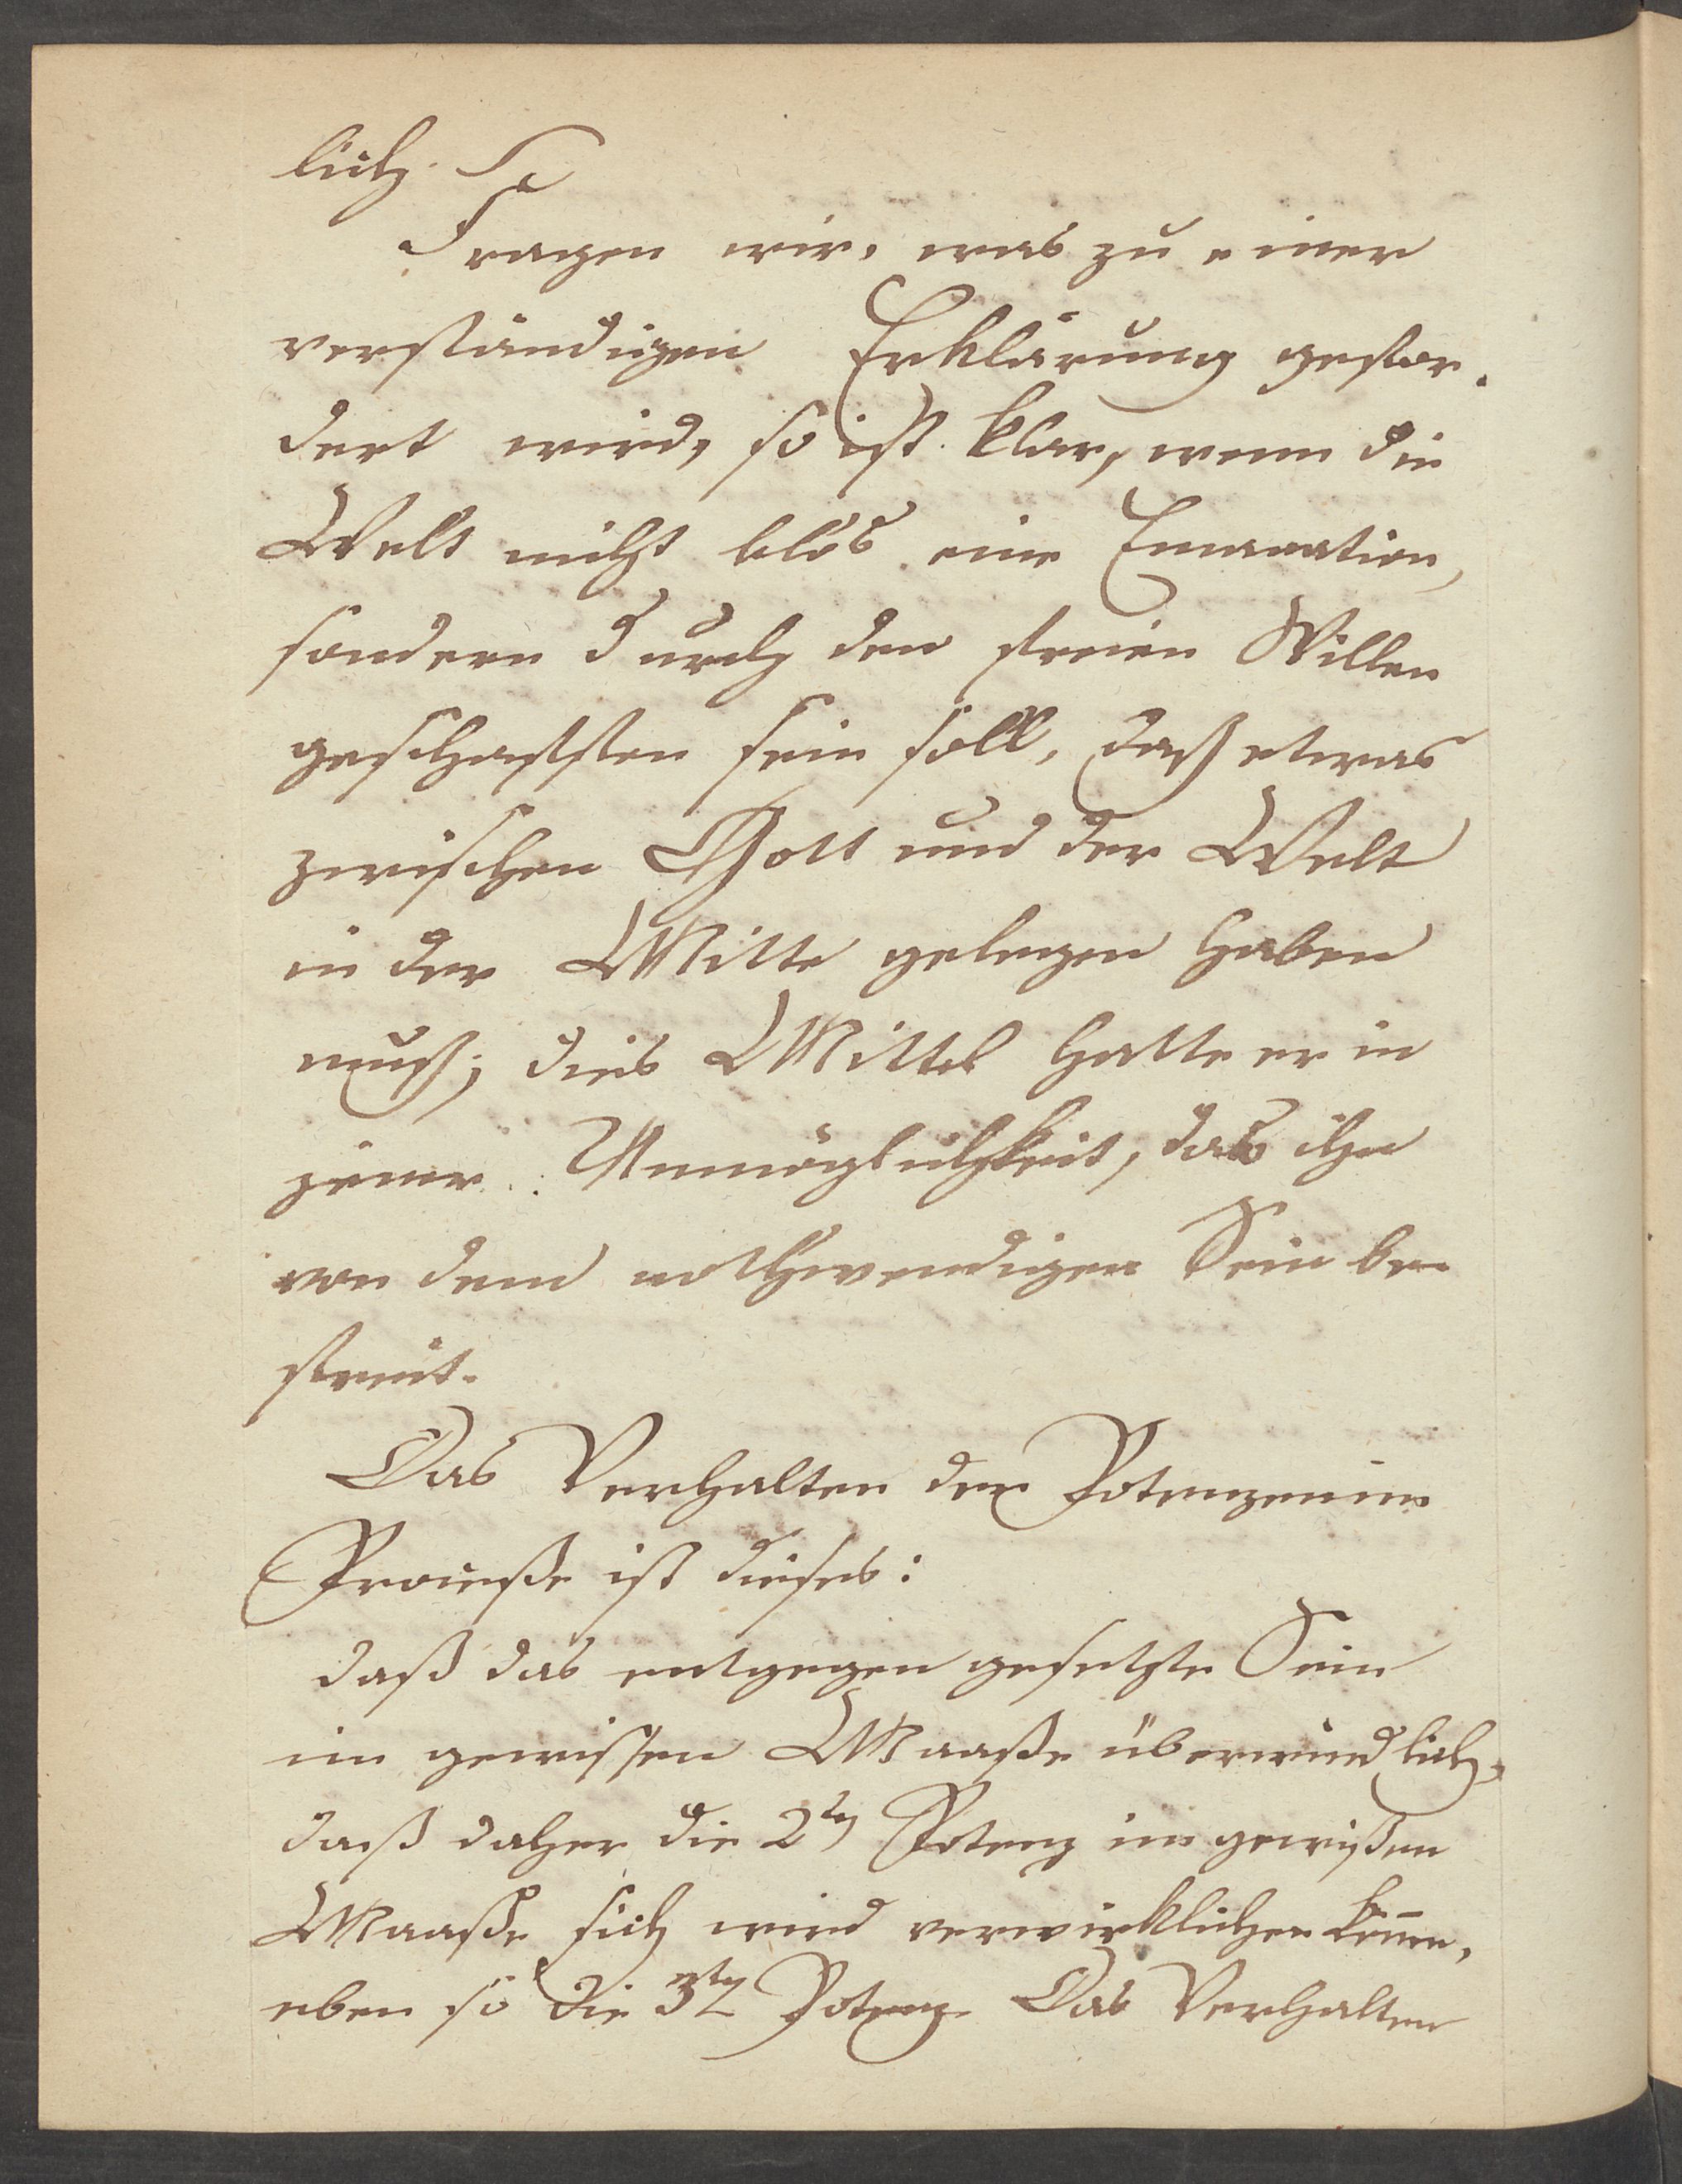 lich.
Fragen wir, was zu einer
verständigen Erklärung gefor-
dert wird, so ist klar, wenn die
Welt nicht blos eine Emanation,
sondern durch den freien Willen
geschaffen sein soll, daß etwas
zwischen Gott und der Welt
in der Mitte gelegen haben
muß; dies Mittel hatte er in
jener Unmöglichkeit, das ihn
von dem nothwendigen Sein be-
freit.
Das Verhalten der Potenzen im
Proceße ist dieses:
daß das entgegen gesetzte Sein
im gewissen Maaße überwindlich,
daß daher die 2te Potenz im gewißen
Maaße sich wird verwirklichen können,
eben so die 3te Potenz. Das Verhalten